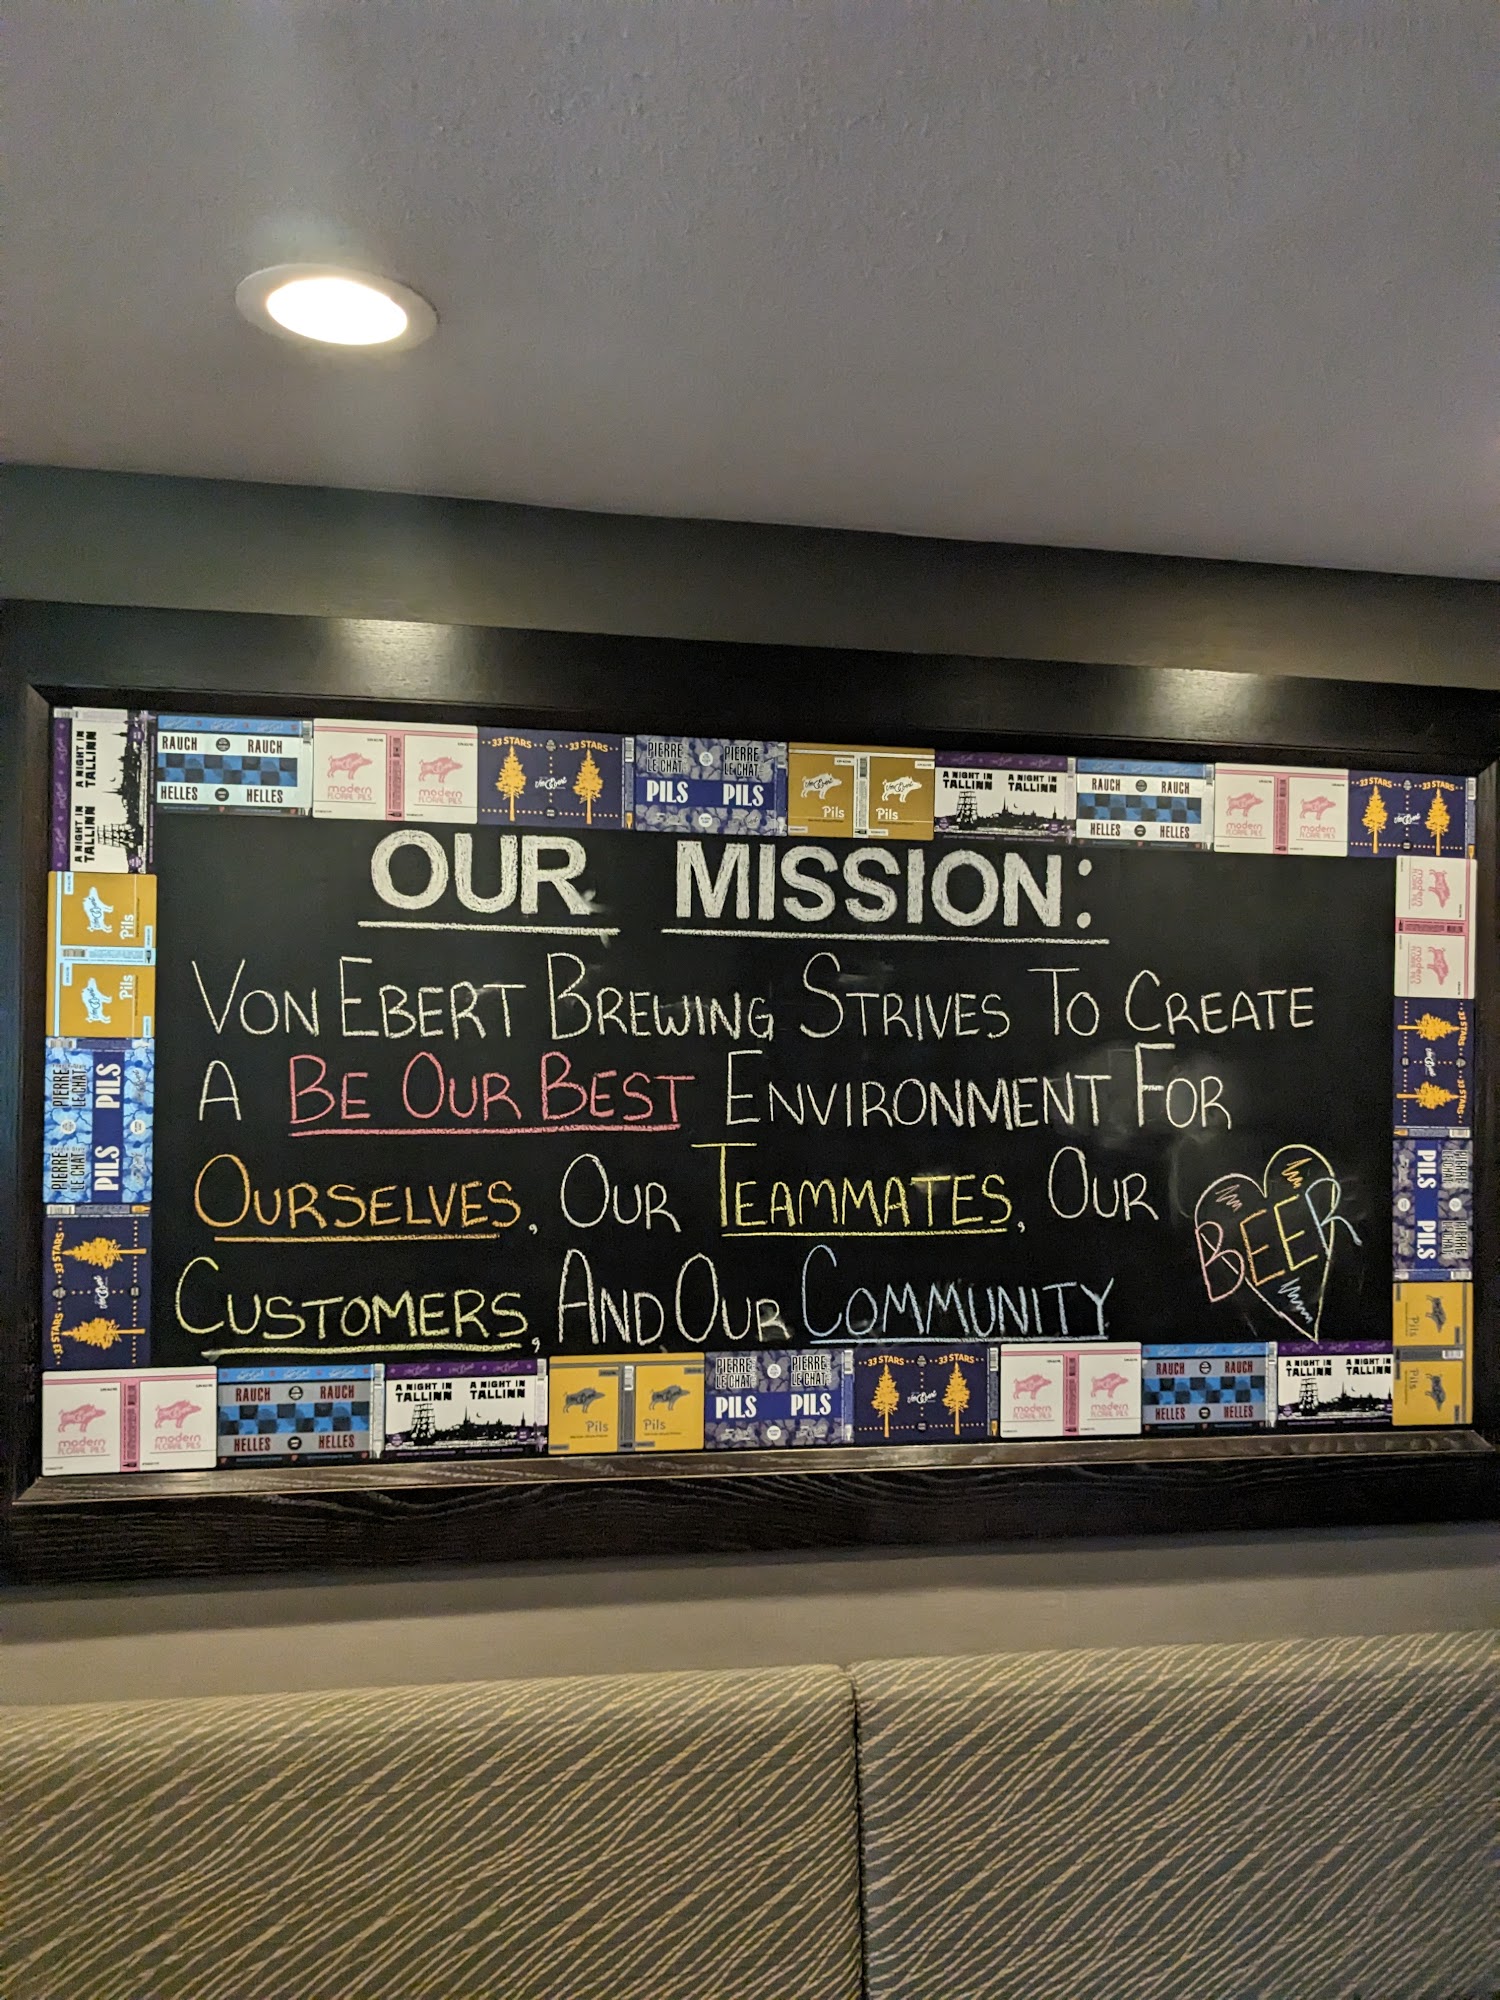 A NIGHT IN TALLINN A NIGHT IN TALLINN
RAUCH RAUCH
HELLES HELLES
modern FLORAL PILS modern FLORAL PILS
33 STARS 33 STARS
PIERRE LE CHAT PIERRE LE CHAT
PILS PILS
Pils Pils
A NIGHT IN TALLINN A NIGHT IN TALLINN
RAUCH RAUCH
HELLES HELLES
modern FLORAL PILS modern FLORAL PILS
33 STARS 33 STARS
OUR MISSION:
VON EBERT BREWING STRIVES TO CREATE
A BE OUR BEST ENVIRONMENT FOR
OURSELVES, OUR TEAMMATES, OUR
CUSTOMERS, AND OUR COMMUNITY
BEER
Pils Pils
PIERRE LE CHAT PIERRE LE CHAT
PILS PILS
33 STARS 33 STARS
modern FLORAL PILS modern FLORAL PILS
33 STARS 33 STARS
PIERRE LE CHAT PIERRE LE CHAT
PILS PILS
Pils Pils
modern FLORAL PILS modern FLORAL PILS
RAUCH RAUCH
HELLES HELLES
A NIGHT IN TALLINN A NIGHT IN TALLINN
Pils Pils
PIERRE LE CHAT PIERRE LE CHAT
PILS PILS
33 STARS 33 STARS
modern FLORAL PILS modern FLORAL PILS
RAUCH RAUCH
HELLES HELLES
A NIGHT IN TALLINN A NIGHT IN TALLINN